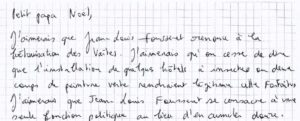 Petit papa Noël,
J'aimerais que Jean-Louis Fousseret renonce à la
bétonisation des Vaîtes. J'aimerais qu'on cesse de dire
que l'installation de quelques hôtels à insectes ou deux
coups de peinture verte rendraient légitime cette
J'aimerais que Jean-Louis Fousseret se consacre à une
seule fonction politique au lieu d'en cumuler douze.